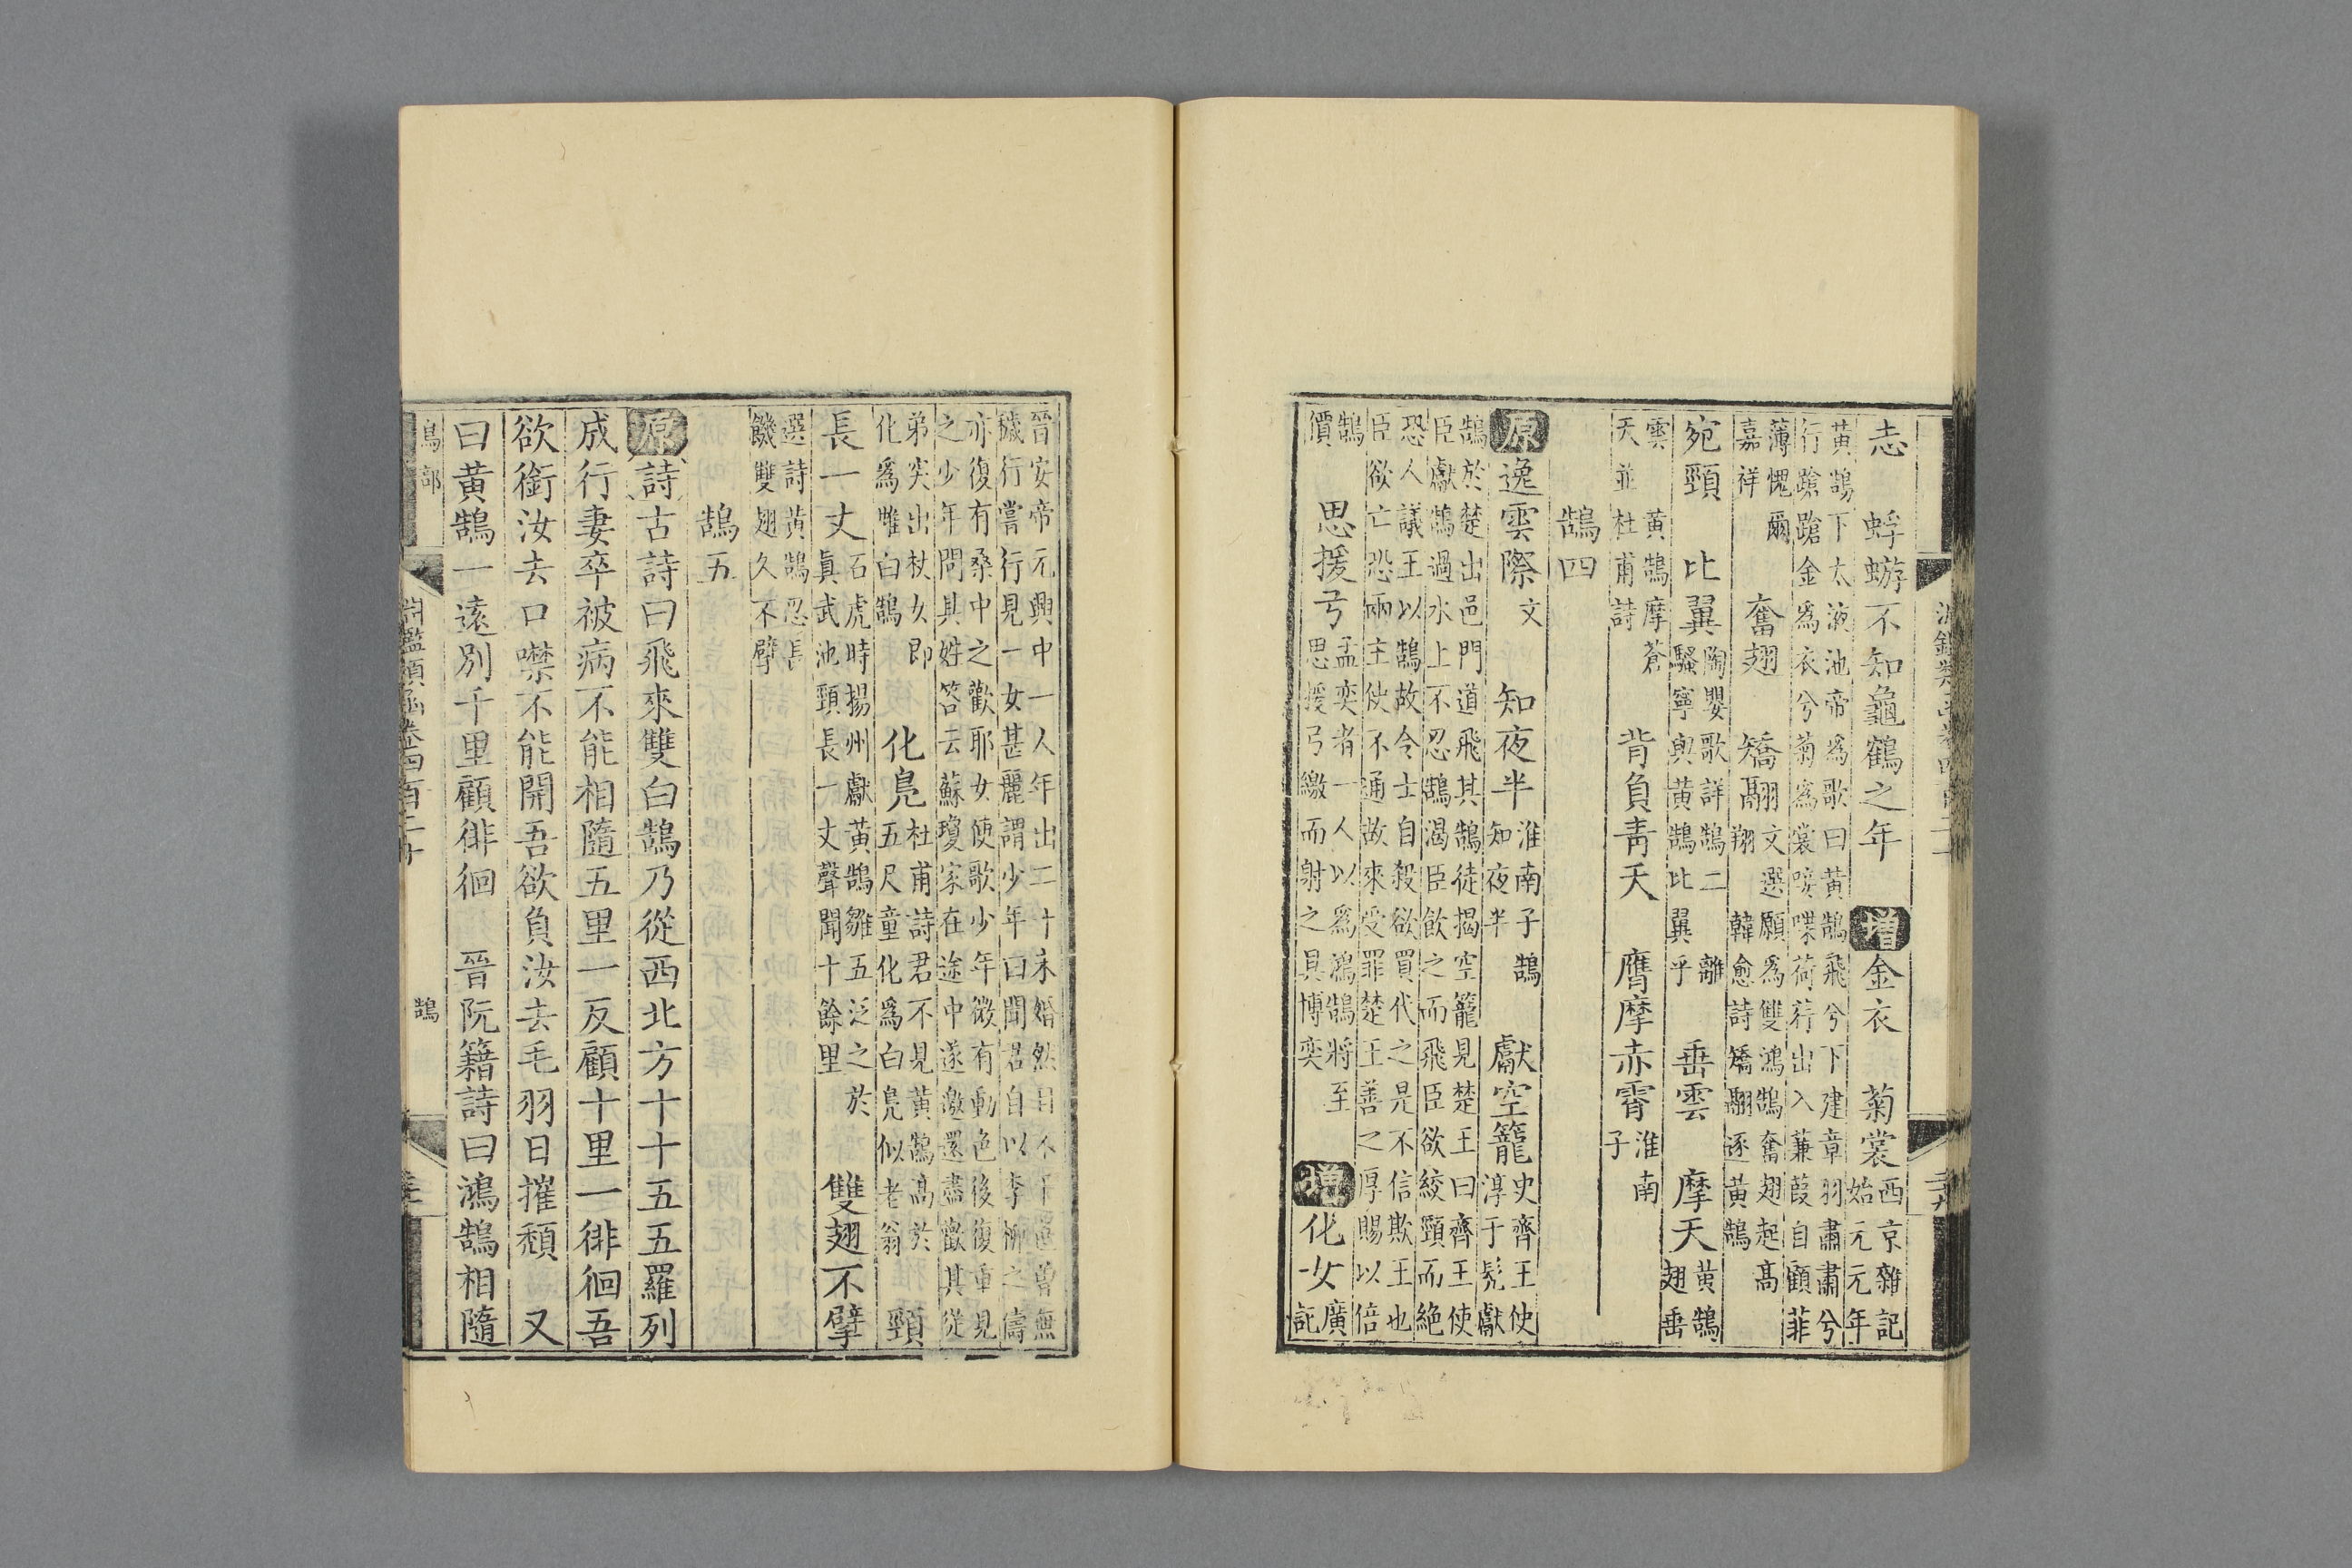 志 蜉蝣不知龜鶴之年 增金衣 菊裳西京雜記始元元年
黃鵠下太液池帝爲歌曰黃鵠飛兮下建章羽肅肅兮
行蹌蹌金爲衣兮菊爲裳唼喋荷荇出入蒹葭自顧菲
薄愧爾嘉祥 奮翅 矯翮文選願爲雙鴻鵠奮翅起高翔韓愈詩矯翮逐黃鵠
宛頸 比翼陶嬰歌詳鵠二離騷寧與黃鵠比翼乎 垂雲 摩天黃鵠翅垂
雲 黃鵠摩蒼天並杜甫詩 背負青天 膺摩赤霄淮南子
鵠四
原逸雲際文 知夜半淮南子鵠知夜半 獻空籠史齊王使淳于髡獻
鵠於楚出邑門道飛其鵠徒揭空籠見楚王曰齊王使
臣獻鵠過水上不忍鵠渴臣飲之而飛臣欲絞頸而絕
恐人議王以鵠故令士自殺欲買代之是不信欺王也
臣欲亡恐兩主使不通故來受罪楚王善之厚賜以倍
鵠價 思援弓孟奕者一人以爲鴻鵠將至思援弓繳而射之具博奕 增化女廣記
晉安帝元興中一人年出二十未婚然目不干色曾無
穢行嘗行見一女甚麗謂少年曰聞君自以李柳之儔
亦復有桑中之歡耶女便歌少年微有動色後復重見
之少年問其姓答去蘇瓊家在途中遂邀還盡歡其從
弟突出杖女即化爲雌白鵠 化鳧杜甫詩君不見黃鵠高於五尺童化爲白鳧似老翁 頸
長一丈石虎時揚州獻黃鵠雛五泛之於眞武池頸長一丈聲聞十餘里 雙翅不擘
選詩黃鵠忍長饑雙翅久不擘
鵠五
原詩古詩曰飛來雙白鵠乃從西北方十十五五羅列
成行妻卒被病不能相隨五里一反顧十里一徘徊吾
欲銜汝去口噤不能開吾欲負汝去毛羽日摧頹 又
曰黃鵠一遠別千里顧徘徊 晉阮籍詩曰鴻鵠相隨
鳥部 鵠
淵鑑類函卷四百二十